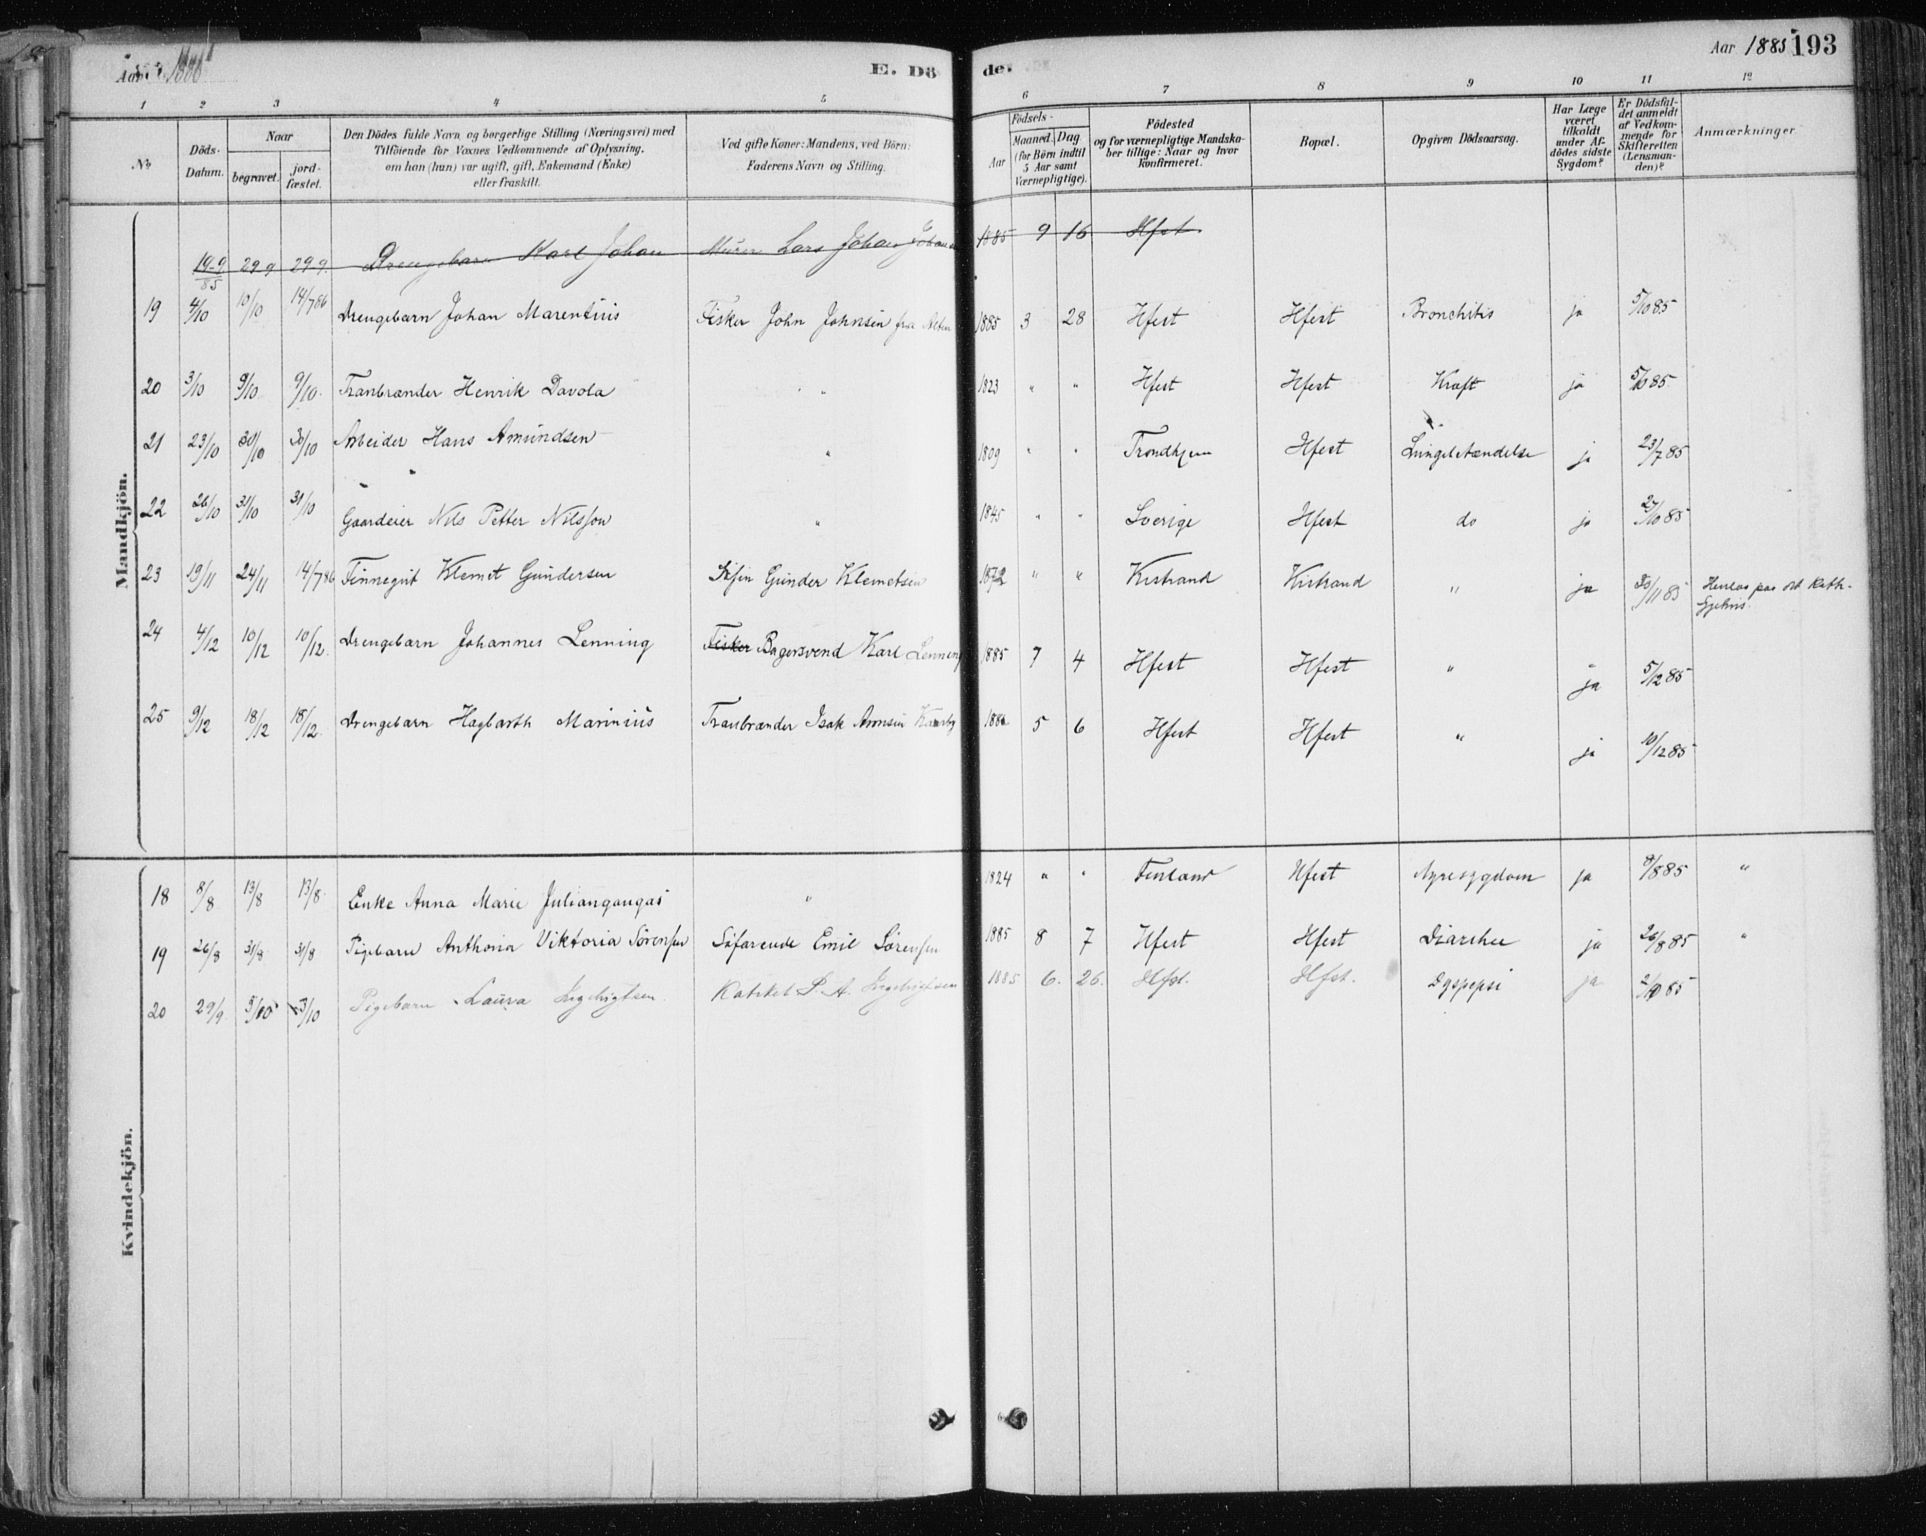 Aar 1885 193
E. Döde.
1 2 3 4 5 6 7 8 9 10 11 12
No. Döds-Datum. Naar begravet. jordfæstet. Den Dödes fulde Navn og borgerlige Stilling (Næringsvei) med Tilföiende for Voxnes Vedkommende af Oplysning, om han (hun) var ugift, gift, Enkemand (Enke) eller fraskilt. Ved gifte Koner: Mandens, ved Börn: Faderens Navn og Stilling. Födsels- Aar Maaned. Dag (for Börn indtil 5 Aar samt Værnepligtige). Födested og for værnepligtige Mandskaber tillige: Naar og hvor konfirmeret. Bopæl. Opgiven Dödsaarsag. Har Læge været tilkaldt under Afdödes sidste Sygdom? Er Dödsfaldet anmeldt af Vedkommende for Skifteretten (Lensmanden)? Anmærkninger
Mandkjön.
19-9/85 29-9 29-9. Drengebarn Karl Johan Murer Lars Johan 1885 9 16 Hfest
19 4/10 10/10 14/7 86 Drengebarn Johan Marentius Fisker John Johnsen fra Alten 1885 3 28 Hfest Hfest Bronchitis ja 5/10 85
20 3/10 9/10 9/10 Tranbrænder Henrik Davola " 1823 " " Hfest Hfest Kræft ja 5/10 85
21 23/10 30/10 30/10 Arbeider Hans Amundsen " 1809 " " Trondhjem Hfest Lungebetændelse ja 23/7 85
22 26/10 31/10 31/10 Gaardeier Nils Petter Nilsson " 1845 " " Sverige Hfest do ja 27/10 85
23 19/11 24/11 14/7 86 Finnegut Klemet Gundersen Gunder Klemetsen 1872 " " Kistrand Kistrand " ja 30/11 85
24 4/12 10/12 10/12. Drengebarn Johannes Lenning Fisker Bagersvend Karl Lenning 1885 7 4 Hfest Hfest " ja 5/12 85
25 9/12 18/12 18/12. Drengebarn Hagbarth Marinius Tranbrænder Isak 5 6 Hfest Hfest " ja 10/12 85
Kvindekjön.
18 8/8 13/8 13/8 Enke Anna Marie Juliangangas " 1824 " " Finland Hfest Nyresygdom ja 9/8 85 "
19 26/8 31/8 31/8 Pigebarn Anthona Viktoria Sørensen Søfarende Emil Sørensen 1885 8 7 Hfest Hfest Diarrhee ja 26/8 85 "
20 29/9 5/10 3/10 Pigebarn Laura 1885. 6. 26. Hfst. Hfst. Dyspepsi ja 2/10 85